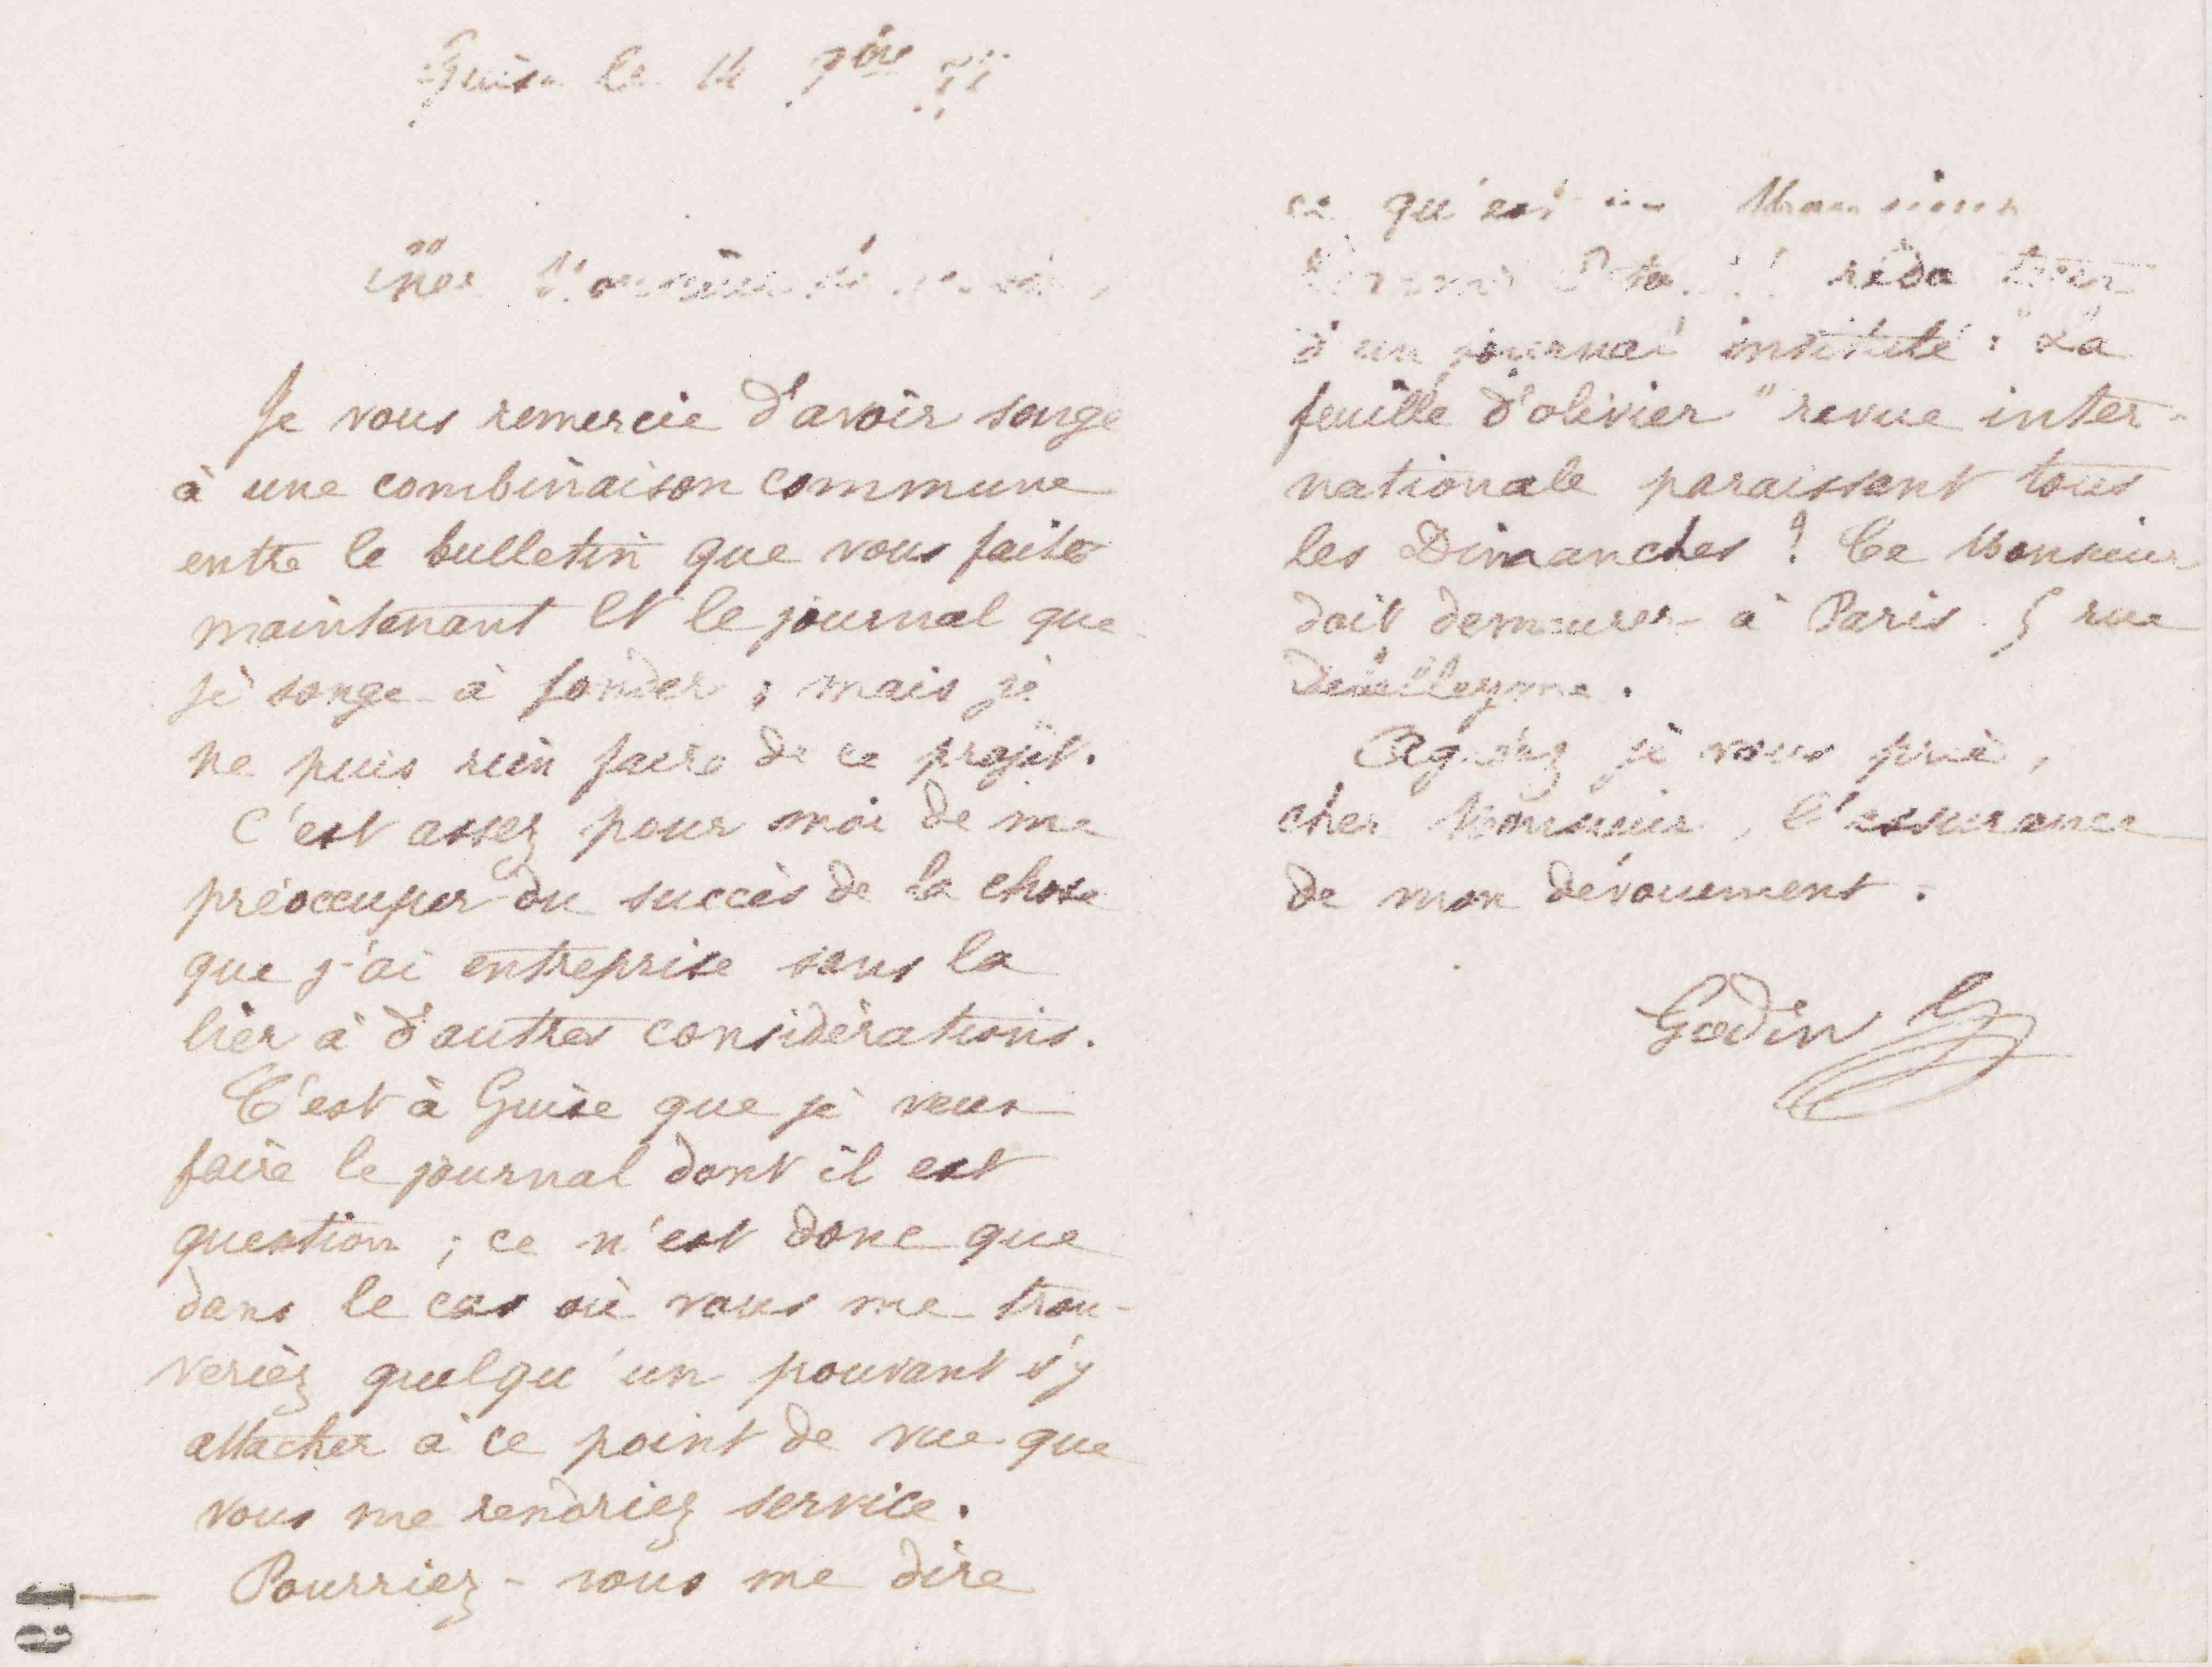 Guise le 14 7bre
Cher Monsieur
Je vous remercie d'avoir songé
à une combinaison commune
entre le bulletin que vous faites
maintenant et le journal que
je songe à fonder ; mais je
ne puis rien faire de ce projet.
C'est assez pour moi de me
préoccuper du succès de la chose
que j'ai entreprise sans la
lier à d'autres considérations.
C'est à Guise que je veux
faire le journal dont il est
question ; ce n'est donc que
dans le cas où vous me trou-
veriez quelqu'un pouvant s'y
attacher à ce point de vue que
vous me rendriez service.
Pourriez-vous me dire
19
ce qu'est un Monsieur
d'un journal intitulé : "La
feuille d'olivier" revue inter-
nationale paraissant tous
les Dimanches ? Ce Monsieur
doit demeurer à Paris 5 rue
Delleyme.
Agréez je vous prie,
cher Monsieur, l'assurance
de mon dévouement.
Godin